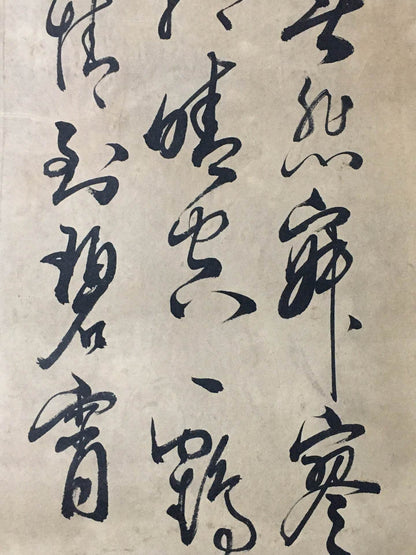 悲寂寥
晴空一鶴
情到碧霄